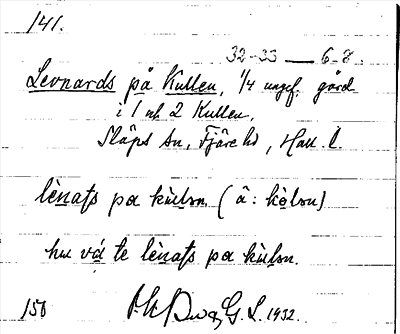 141.
32-33 — 6-8.
Leonards på Kullen, 1/4 ungef. gård
i 1 o. 2 Kullen.
Släps sn, Fjäre hd, Hall. l.
lènats pa kùlsn. (â: kòlsn)
hu vá te lènats pa kùlsn.
150 G. L. 1932.